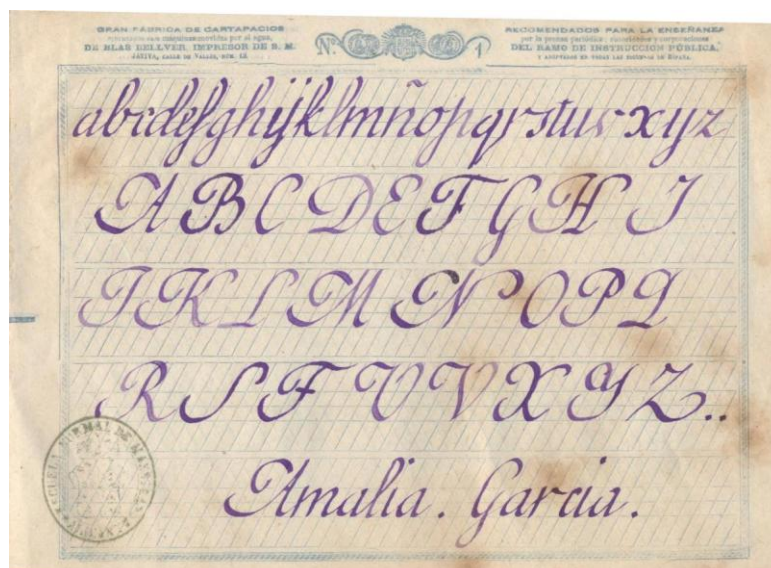 GRAN FÁBRICA DE CARTAPACIOS
DE BLAS BELLVER, IMPRESOR DE S. M.
N.º 1
RECOMENDADOS PARA LA ENSEÑANZA
por la prensa periódica
DEL RAMO DE INSTRUCCION PÚBLICA,
abcdefghijklmnñopqrstuvxyz
A B C D E F G H I
J K L M N O P Q
R S T U V X Y Z..
Amalia. Garcia.
ESCUELA NORMAL DE